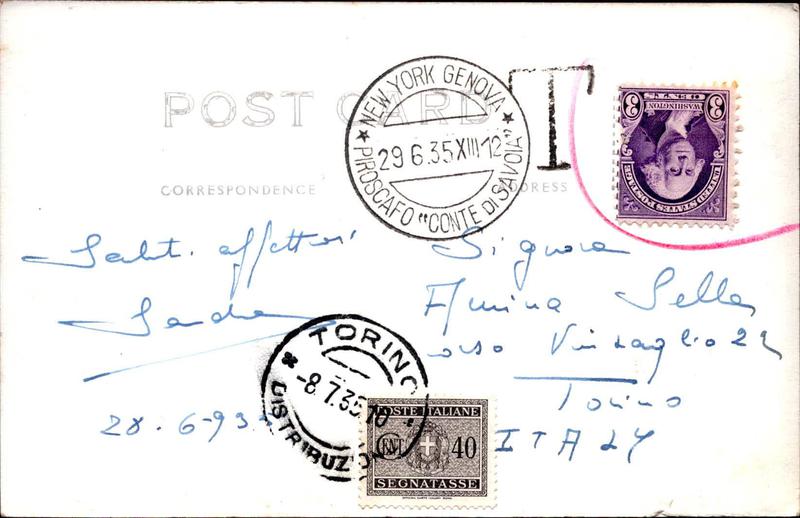 POST CARD
CORRESPONDENCE
ADDRESS
★ NEW YORK GENOVA ★
29 6.35 XIII 12
PIROSCAFO "CONTE DI SAVOIA"
T
3 3
WASHINGTON
UNITED STATES POSTAGE
Saluti affettuosi
Sandra
28-6-935
Signora
Amina Sella
corso Vinzaglio 22
Torino
ITALY
TORINO
-8.7.35 10
DISTRIBUZION
POSTE ITALIANE
CENT. 40
SEGNATASSE